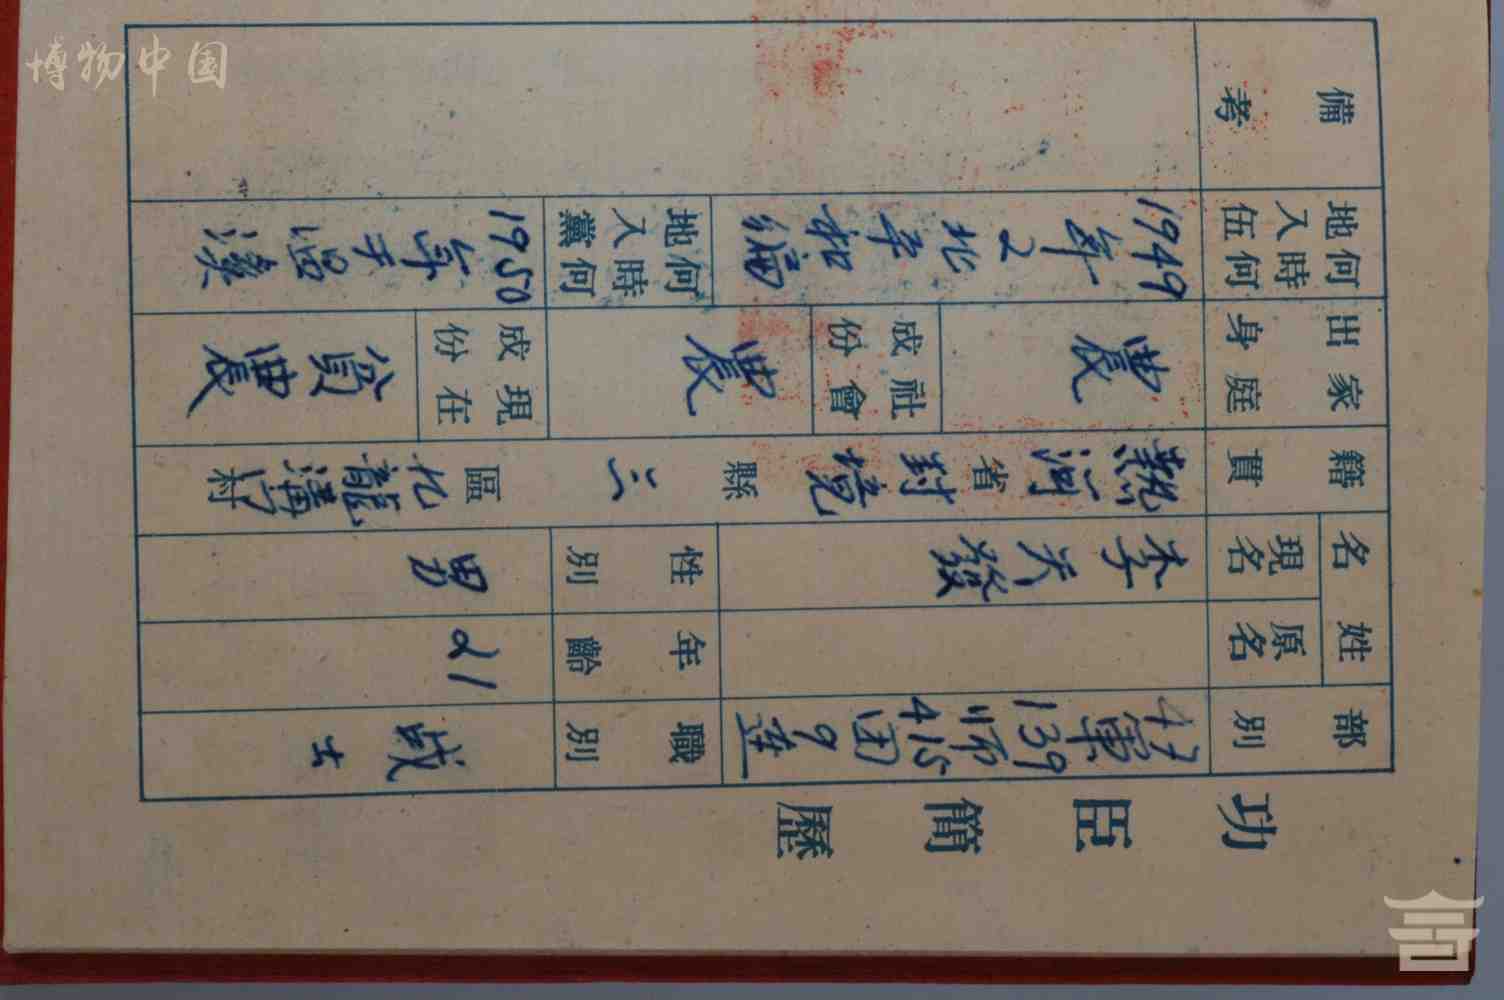 功臣簡歷
部別
47軍139師415团9連
職別
战士
姓名
現名
李天發
性別
男
原名
年齡
21
籍貫
熱河省 縣三區九龍溝村
家庭出身
農
社會成份
農
現在成份
貧農
何時何地入伍
1949年2北平和编
何時何地入黨
1950年于
備考
博物中国